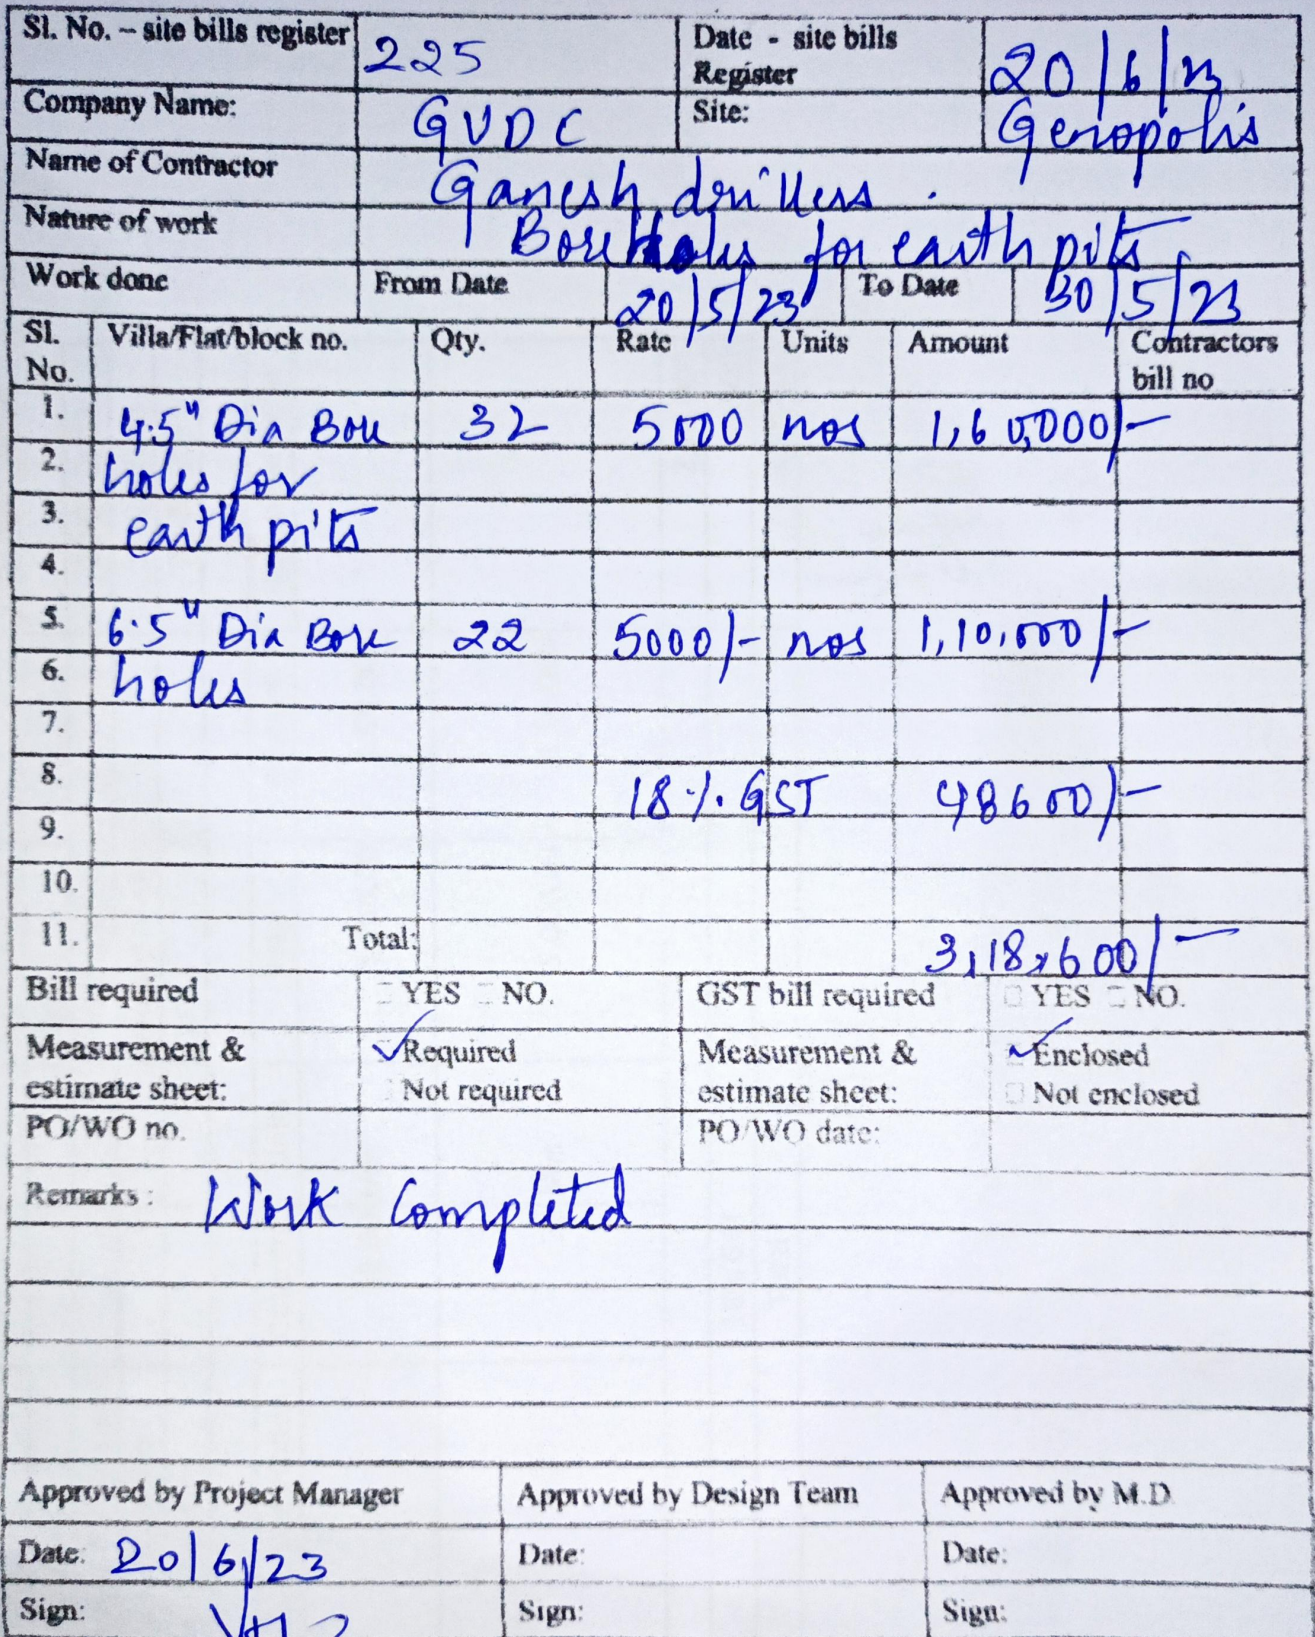 Sl. No. – site bills register 225 Date - site bills Register 20/6/23
Company Name: GVDC Site: Genopolis
Name of Contractor Ganesh drillers.
Nature of work Bore holes for earth pits
Work done From Date 20/5/23 To Date 30/5/23
Sl. No. Villa/Flat/block no. Qty. Rate Units Amount Contractors bill no
1. 4.5" Dia Bore 32 5000 nos 1,60,000/-
2. holes for
3. earth pits
4.
5. 6.5" Dia Bore 22 5000/- nos 1,10,000/-
6. holes
7.
8. 18%. GST 48600/-
9.
10.
11. Total: 3,18,600/-
Bill required YES NO. GST bill required YES NO.
Measurement & estimate sheet: ✓ Required Measurement & estimate sheet: ✓ Enclosed
Not required Not enclosed
PO/WO no. PO/WO date:
Remarks : Work Completed
Approved by Project Manager Approved by Design Team Approved by M.D.
Date: 20/6/23 Date: Date:
Sign: Sign: Sign: